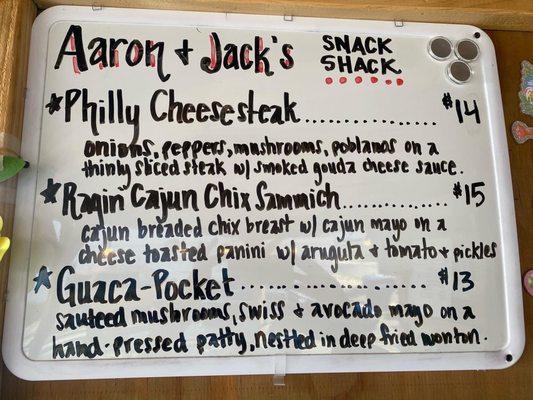 Aaron + Jack's SNACK
SHACK
* Philly Cheesesteak.................. $14
onions, peppers, mushrooms, poblanos on a
thinly sliced steak w/ smoked gouda cheese sauce.
* Ragin' Cajun Chix Sammich.............. $15
cajun breaded chix breast w/ cajun mayo on a
cheese toasted panini w/ arugula + tomato + pickles
* Guaca-Pocket...................... $13
sauteed mushrooms, swiss + avocado mayo on a
hand-pressed patty, nestled in deep fried wonton.